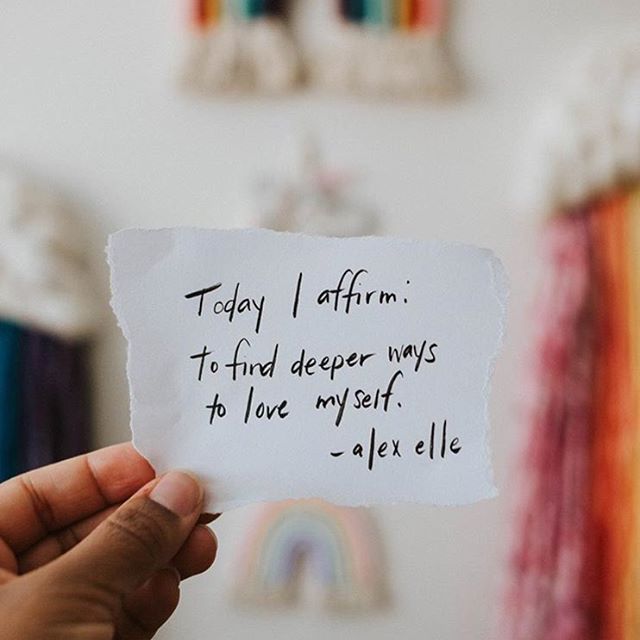 Today I affirm:
to find deeper ways
to love myself.
- alex elle